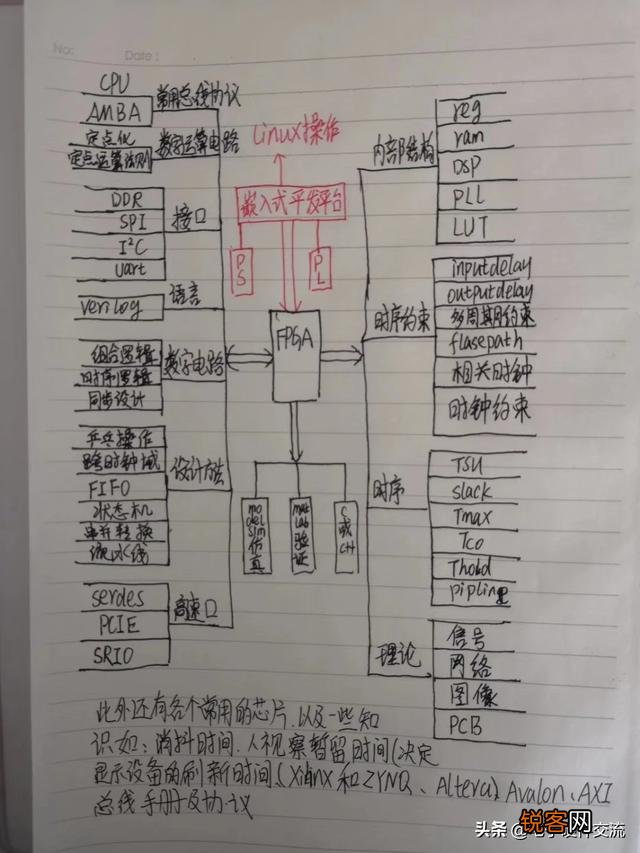 No:
Date:
CPU
AMBA
常用总线协议
定点化
定点运算法则
数字运算电路
DDR
SPI
I²C
uart
接口
verilog
语言
组合逻辑
时序逻辑
同步设计
数字电路
乒乓操作
跨时钟域
FIFO
状态机
串并转换
流水线
设计方法
serdes
PCIE
SRIO
高速口
Linux操作
嵌入式开发平台
PS
PL
FPGA
modelsim仿真
matlab验证
C或C++
内部结构
reg
ram
DSP
PLL
LUT
时序约束
inputdelay
outputdelay
多周期约束
flasepath
相关时钟
时钟约束
时序
TSU
slack
Tmax
Tco
Thold
pipline
理论
信号
网络
图像
PCB
此外还有各个常用的芯片.以及一些知
识如:消抖时间.人视察暂留时间(决定
显示设备的刷新时间)(Xilinx和ZYNQ、Altera)Avalon、AXI
总线手册及协议
头条 @电子硬件交流
锐客网